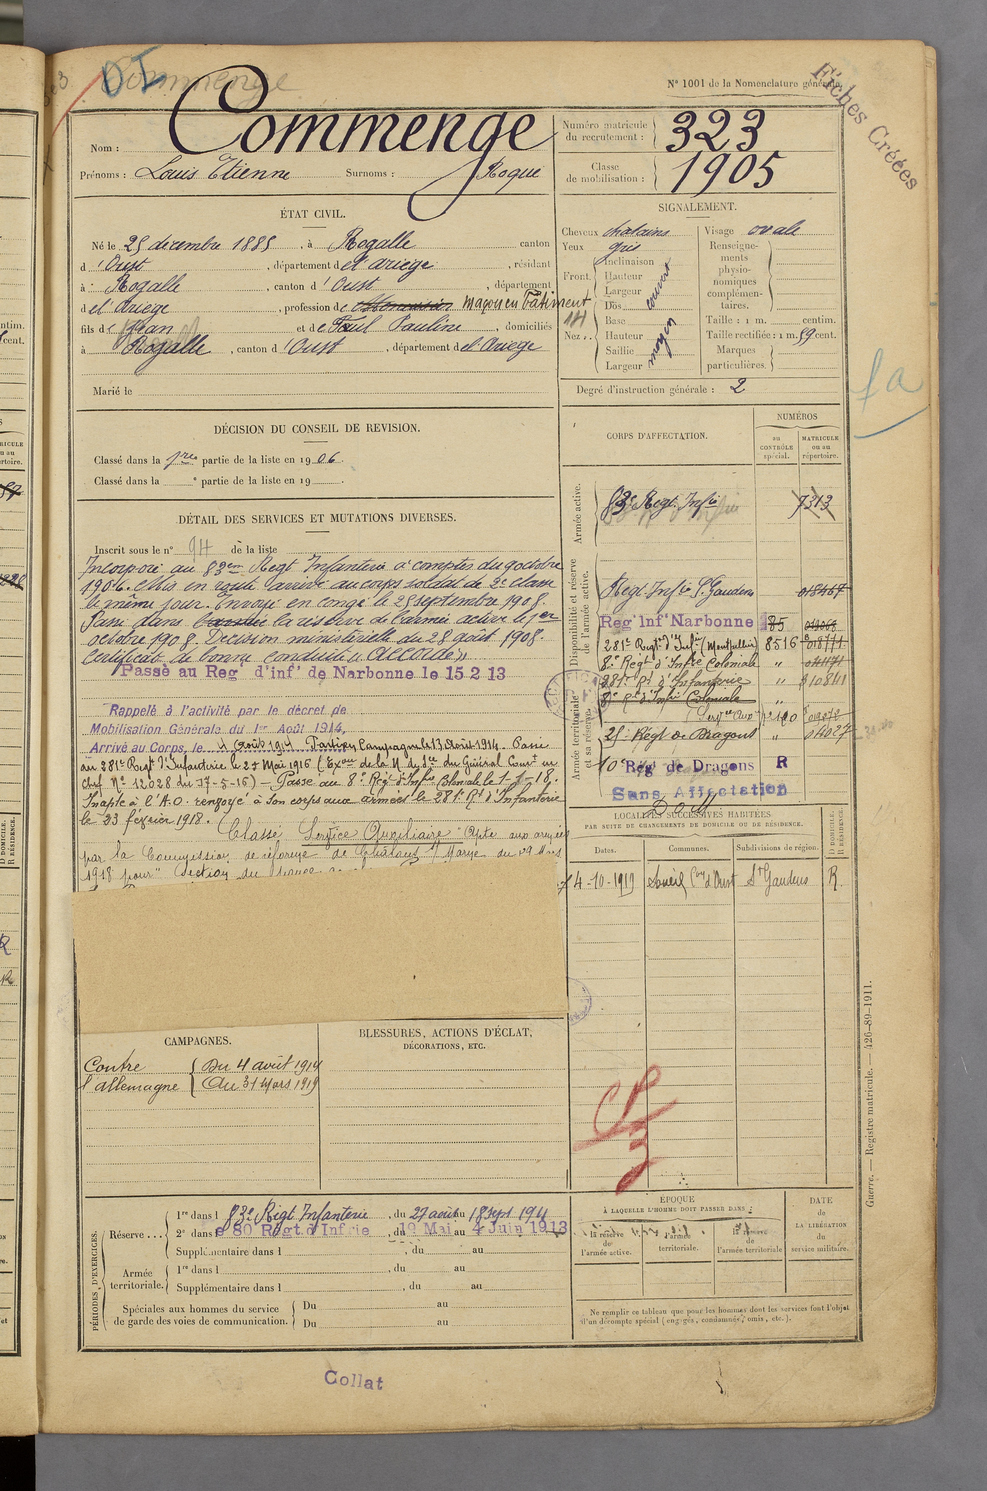 DI Commenge
N° 1001 de la Nomenclature générale
Fiches Créées
Nom : Commenge
Prénoms : Louis Etienne Surnoms : Roque
Numéro matricule du recrutement : 323
Classe de mobilisation : 1905
ÉTAT CIVIL.
Né le 25 decembre 1885, à Rogalle canton
d'Oust, département de l'Ariège, résidant
à Rogalle, canton d'Oust, département
de l'Ariège, profession de maçon en bâtiment
fils de Jean et de Faul Pauline, domiciliés
à Rogalle, canton d'Oust, département de l'Ariège
Marié le
SIGNALEMENT.
Cheveux chatains
Yeux gris
Front. Inclinaison
Hauteur
Largeur
couvert
Nez. Dos
Base
Hauteur
Saillie
Largeur
moyen
Visage ovale
Renseignements physionomiques complémentaires.
Taille : 1 m. centim.
Taille rectifiée : 1 m. 59 cent.
Marques particulières.
Degré d'instruction générale : 2
fa
DÉCISION DU CONSEIL DE REVISION.
Classé dans la 1re partie de la liste en 1906.
Classé dans la e partie de la liste en 19
DÉTAIL DES SERVICES ET MUTATIONS DIVERSES.
Inscrit sous le n° 94 de la liste
Incorporé au 83em Regt Infanterie à compter du 9 octobre
1906. Mis en route arrivé au corps soldat de 2e classe
le même jour. Envoyé en congé le 25 septembre 1908.
Passé dans la réserve de l'armée active le 1er
octobre 1908. Décision ministérielle du 28 août 1908.
Certificat de bonne conduite "ACCORDÉ"
Passé au Reg' d'inf' de Narbonne le 15 2 13
Rappelé à l'activité par le décret de
Mobilisation Générale du 1er Août 1914.
Arrivé au Corps, le 4 Août 1914 Parti en Campagne le 13 Août 1914. Passé
au 281e Regt d'Infanterie le 27 Mai 1916 (Exon de la N. de Sce du Général Comt en
Chef N° 12028 du 17-5-16) – Passé au 8e Rég. d'Infie Coloniale le 1-1-18.
Inapte à l'A.O. renvoyé à son corps aux armées le 281e Rt d'Infanterie
le 23 février 1918.
Classé Service Auxiliaire Apte aux armées
par la Commission de réforme de Châlons s/ Marne du 29 Mars
1918 pour
CORPS D'AFFECTATION.
NUMÉROS
au CONTRÔLE spécial.
MATRICULE ou au répertoire.
Armée active.
83e Regt Infie 7313
Disponibilité et réserve de l'armée active.
Regt Infie St Gaudens
Reg' Inf' Narbonne 185
281e Regt d'Infie (Montpellier) 8516
8e Regt d'Infie Coloniale "
281e Rt d'Infanterie "
8e Rt d'Infie Coloniale "
Armée territoriale et sa réserve.
25e Régt de Dragons "
10e Rég de Dragons R
Sans Affectation
LOCALITÉS SUCCESSIVES HABITÉES
PAR SUITE DE CHANGEMENTS DE DOMICILE OU DE RÉSIDENCE.
Dates.
Communes.
Subdivisions de région.
D DOMICILE.
R RÉSIDENCE.
4-10-1919 Soueil Con d'Oust St Gaudens R.
CAMPAGNES.
Contre l'allemagne
Du 4 août 1914
Au 31 Mars 1919
BLESSURES, ACTIONS D'ÉCLAT,
DÉCORATIONS, ETC.
PÉRIODES D'EXERCICES.
Réserve . . .
1re dans l 83e Régt Infanterie, du 27 août au 18 sept 1911
2e dans le 80 Regt d'Infrie, du 19 Mai au 4 Juin 1913
Supplémentaire dans l , du au
Armée territoriale.
1re dans l , du au
Supplémentaire dans l , du au
Spéciales aux hommes du service
de garde des voies de communication.
Du au
Du au
ÉPOQUE
À LAQUELLE L'HOMME DOIT PASSER DANS :
la réserve de l'armée active.
l'armée territoriale.
la réserve de l'armée territoriale
DATE DE LA LIBÉRATION du service militaire.
Ne remplir ce tableau que pour les hommes dont les services font l'objet
d'un décompte spécial (engagés, condamnés, omis, etc.).
Guerre. — Registre matricule. — 426-89-1911.
Collat